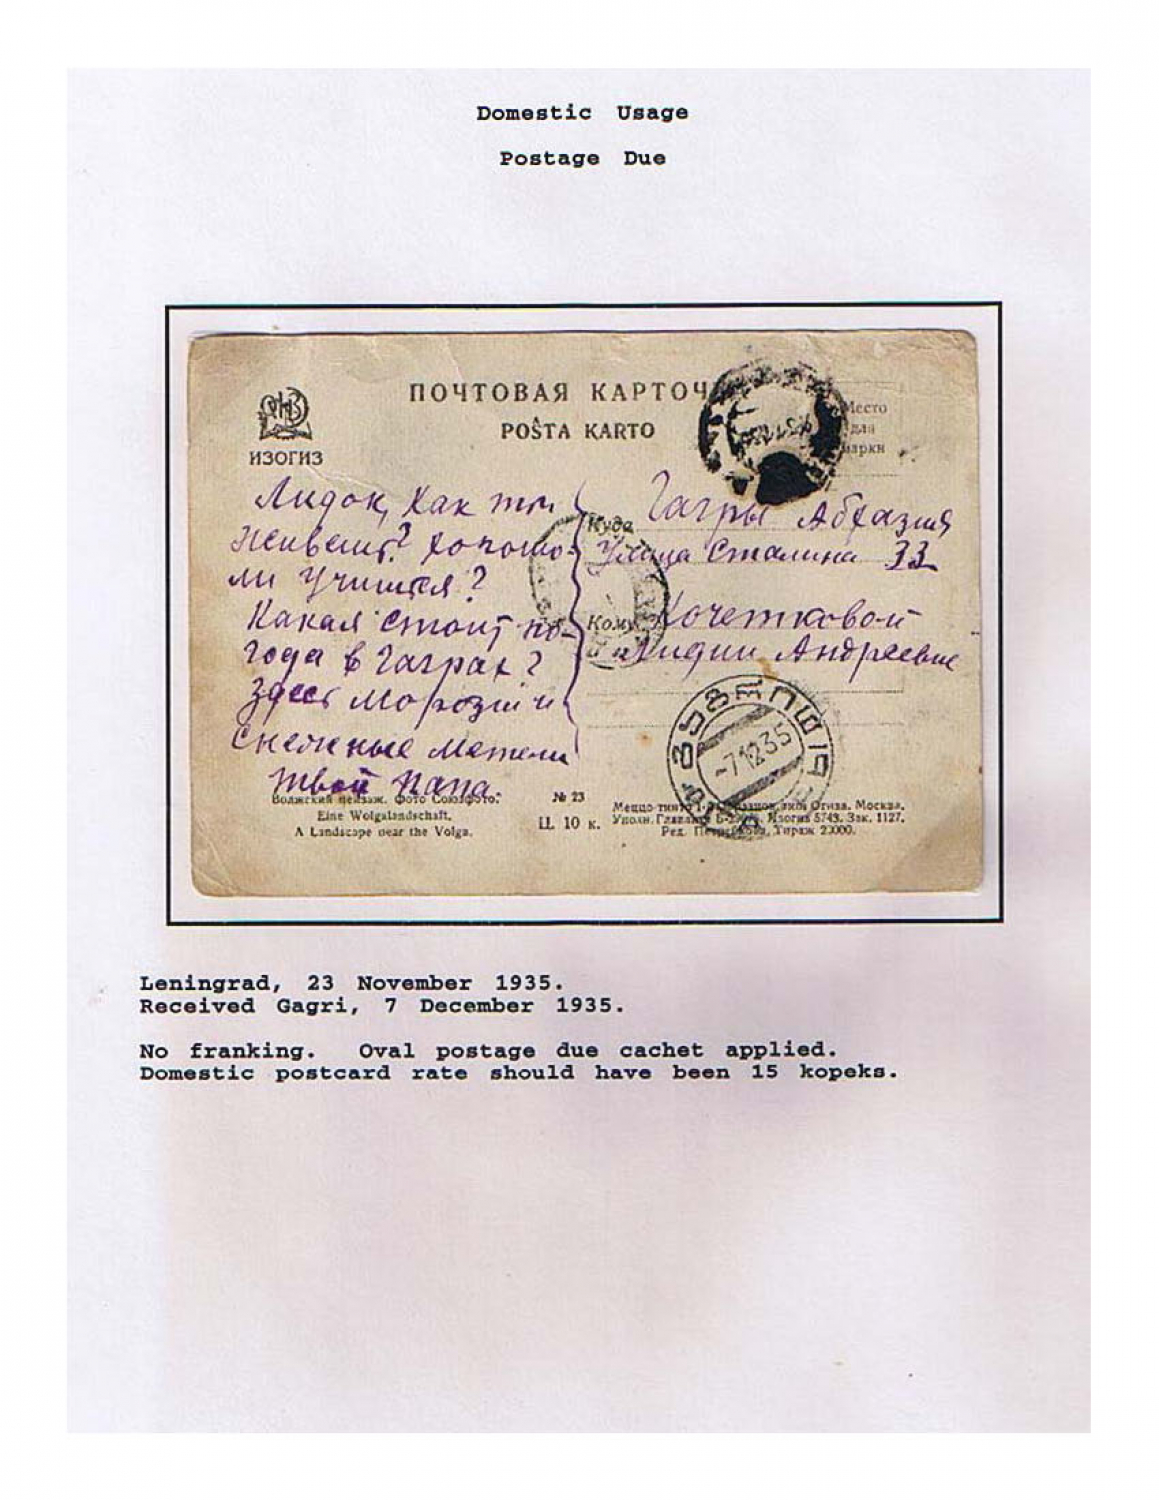 Domestic Usage
Postage Due
ПОЧТОВАЯ КАРТОЧ
POŜTA KARTO
ИЗОГИЗ
Место
для
марки
Лидок, как ты
живешь? хорошо
ли учишся?
Какая стоит по-
года в Гаграх?
Здесь морозы и
снежные метели
Твой папа.
Куда
Гагры Абхазия
Улица Сталина 33
Кому
Кочетковой
Лидии Андреевне
-7.12.35
Волжский пейзаж. Фото Союзфото.
Eine Wolgalandschaft.
A Landscape near the Volga.
№ 23
Ц. 10 к.
Меццо-тинто 1-й Огиза. Москва.
Уполн. Главлита Изогиз 5743. Зак. 1127.
Ред. Тираж 20000.
Leningrad, 23 November 1935.
Received Gagri, 7 December 1935.
No franking. Oval postage due cachet applied.
Domestic postcard rate should have been 15 kopeks.